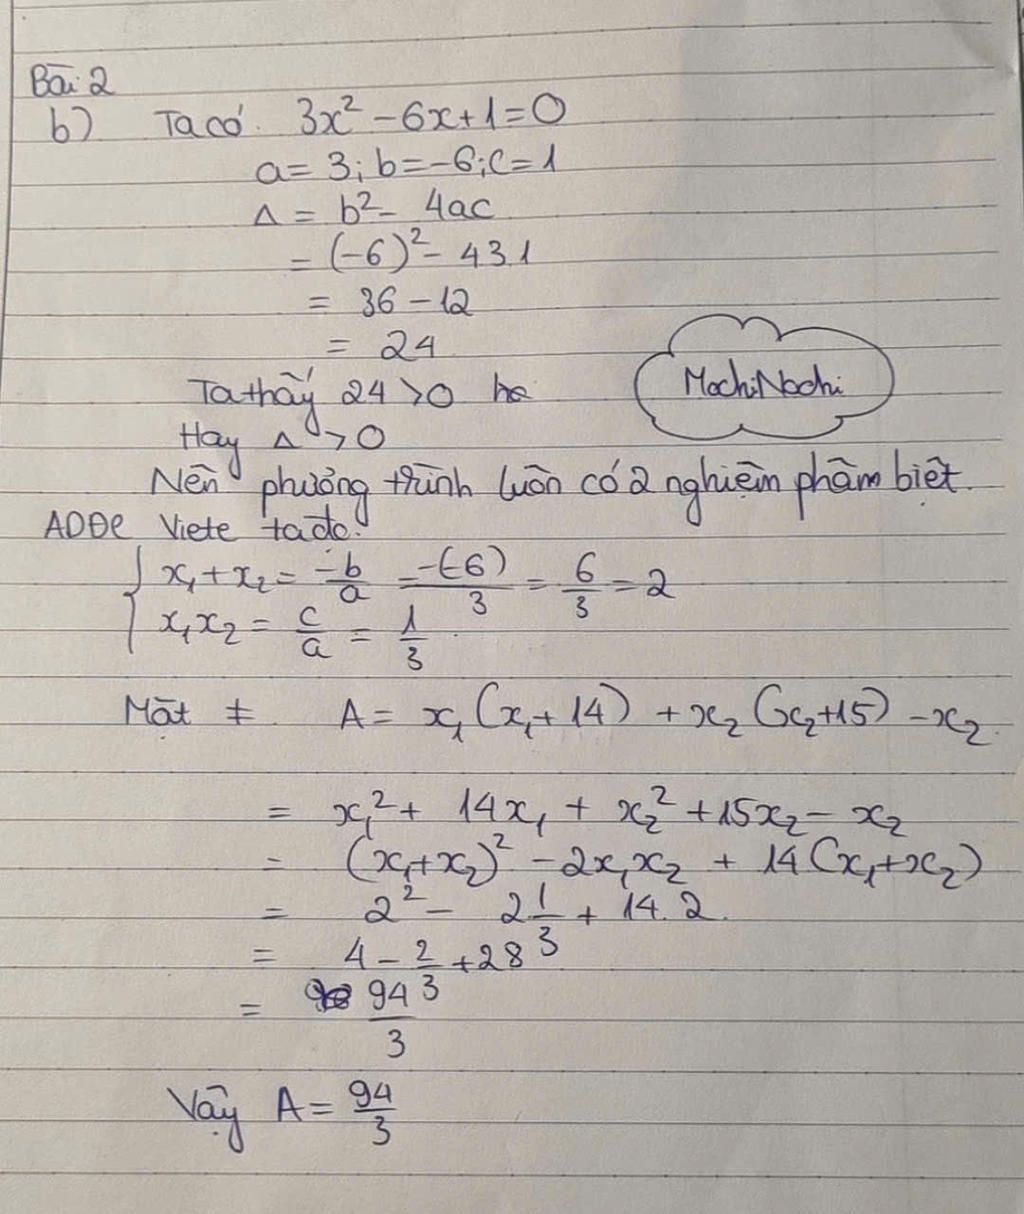 Bài 2
b) Ta có. 3x² - 6x + 1 = 0
a = 3; b = -6; c = 1
Δ = b² - 4ac
= (-6)² - 4 3.1
= 36 - 12
= 24
Ta thấy 24 > 0
Hay Δ > 0
MochiNochi
Nên phương trình luôn có 2 nghiệm phâm biệt.
ADĐL Viete ta đc.
{ x₁ + x₂ = -b/a = -(-6)/3 = 6/3 = 2
x₁x₂ = c/a = 1/3
Mặt ≠ A = x₁(x₁ + 14) + x₂(x₂ + 15) - x₂
= x₁² + 14x₁ + x₂² + 15x₂ - x₂
= (x₁ + x₂)² - 2x₁x₂ + 14(x₁ + x₂)
= 2² - 2 1/3 + 14.2.
= 4 - 2/3 + 28
= 94/3
Vậy A = 94/3